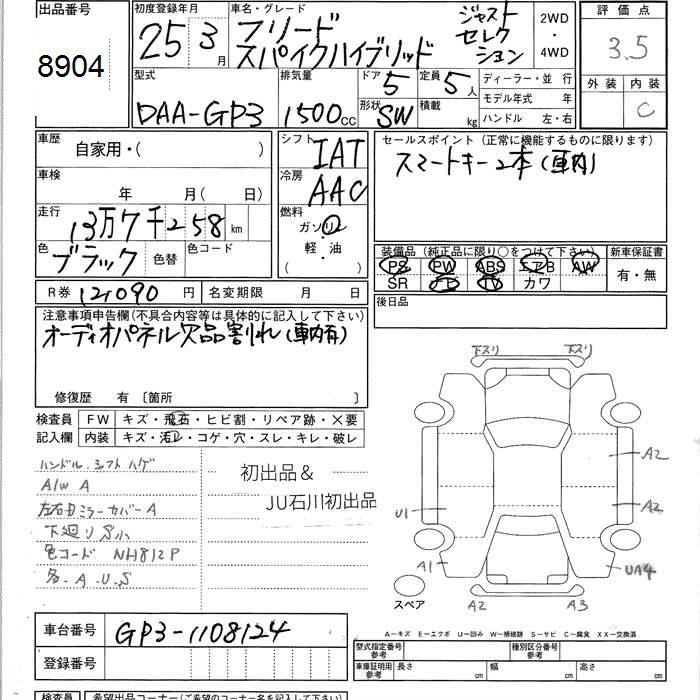 出品番号
8904
初度登録年月
25 3月
車名・グレード
フリード
スパイクハイブリッド
ジャスト
セレク
ション
2WD
・
4WD
評価点
3.5
外装 内装
C
型式
DAA-GP3
排気量
1500cc
ドア 5
形状 SW
定員 5人
積載 kg
ディーラー・並行
モデル年式 年
ハンドル 左・右
車歴
自家用・( )
車検
年 月( 日)
走行
13万7千258km
色
ブラック 色替
色コード
シフト
IAT
冷房
AAC
燃料
ガソリン
・
軽・油
( )
セールスポイント(正常に機能するものに限ります)
スマートキー2本(車内)
装備品(純正品に限り○をつけて下さい)
PS PW ABS エアB AW
SR ナビ TV カワ
新車保証書
有・無
後日品
R券 12,090円
名変期限 月 日
注意事項申告欄(不具合内容等は具体的に記入して下さい)
オーディオパネル欠品割れ(車内有)
修復歴 有 〔箇所 〕
検査員
記入欄
FW キズ・飛石・ヒビ割・リペア跡・X要
内装 キズ・汚レ・コゲ・穴・スレ・キレ・破レ
ハンドル・シフトハゲ
A/W A
左右ミラーカバーA
下廻りサ小
色コード NH812P
多.A.U.S
初出品&
JU石川初出品
下スリ 下スリ
A2
A2
U1
A1
UA4
A2
A3
スペア
車台番号
GP3-1108124
登録番号
A-キズ E-エクボ U-凹み W-補修跡 S-サビ C-腐食 XX-交換済
型式指定番号
参考
種別区分番号
参考
車庫証明用
参考
長さ cm
幅 cm
高さ cm
検査員
希望出品コーナー(ご希望のコーナー名を記入下さい)